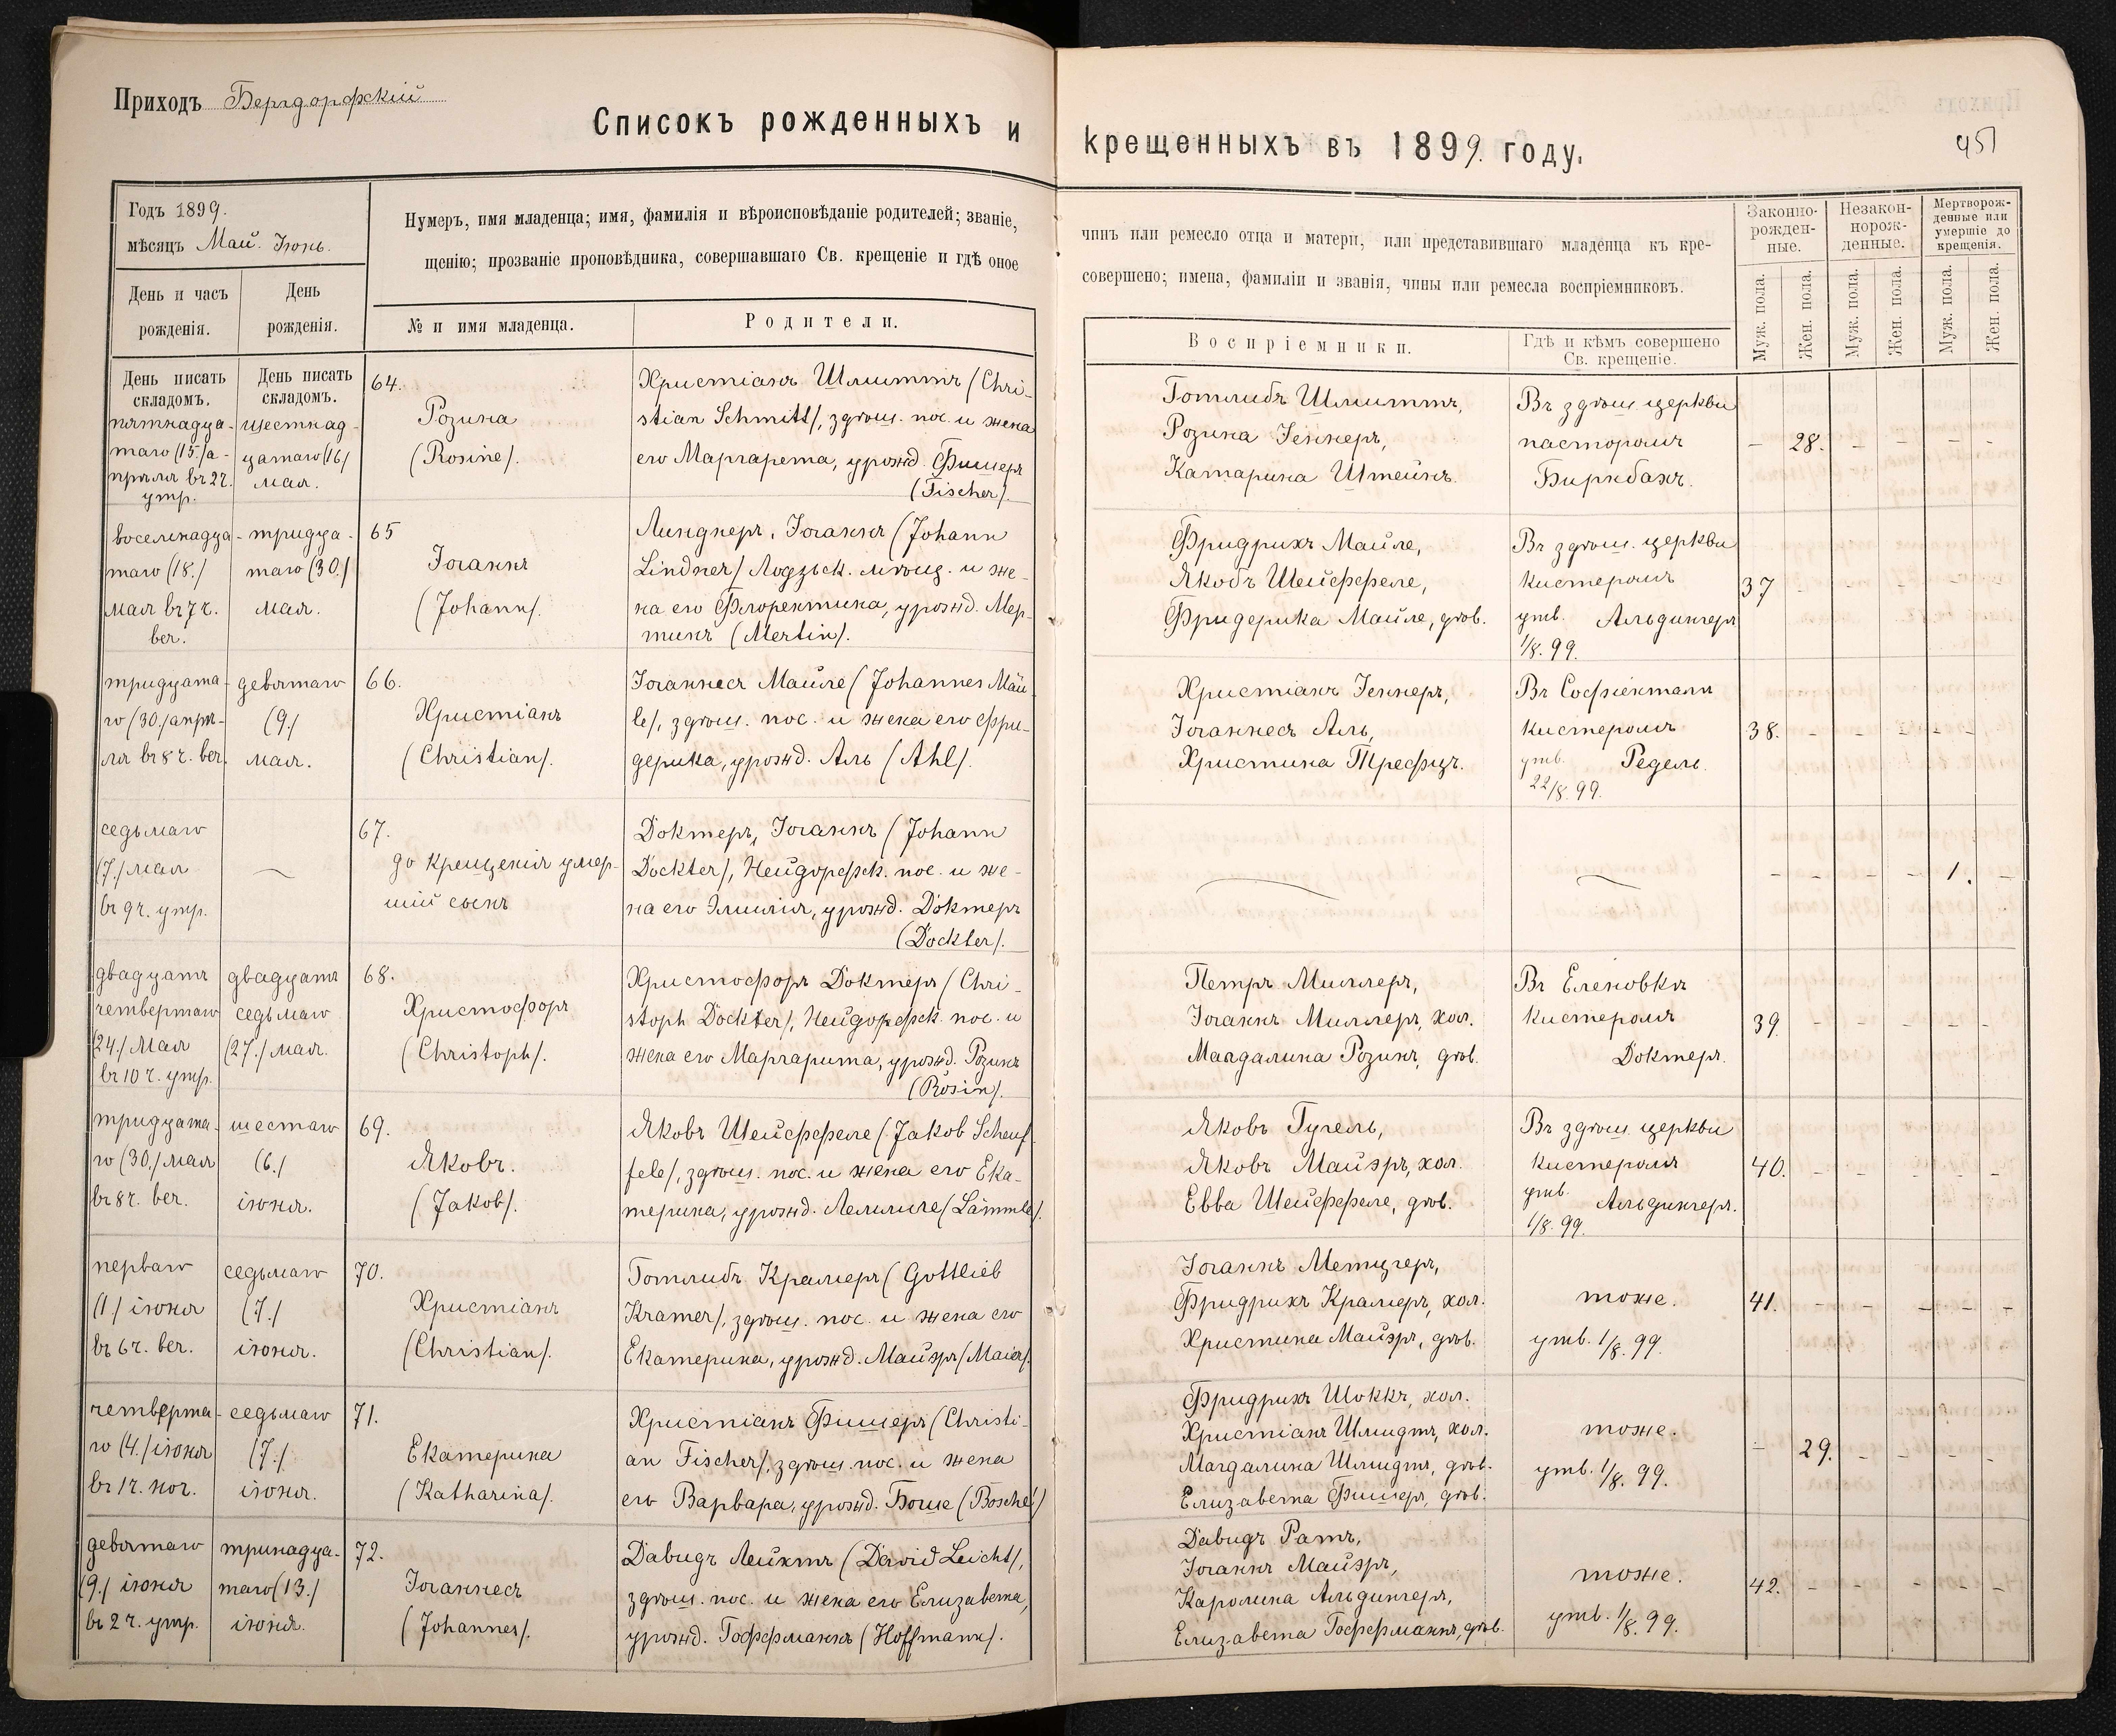 Приходъ Бергдорфскій
Списокъ рожденныхъ и крещенныхъ въ 1899. году.
451
Годъ 1899.
мѣсяцъ Май. Іюнь.
Нумеръ, имя младенца; имя, фамилія и вѣроисповѣданіе родителей; званіе, чинъ или ремесло отца и матери, или представившаго младенца къ кре-
щенію; прозваніе проповѣдника, совершавшаго Св. крещеніе и гдѣ оное совершено; имена, фамиліи и званія, чины или ремесла воспріемниковъ.
Законно-
рожден-
ные.
Незакон-
норож-
денные.
Мертворож-
денные или
умершіе до
крещенія.
День и часъ
рожденія.
День
рожденія.
№ и имя младенца.
Родители.
Воспріемники.
Гдѣ и кѣмъ совершено
Св. крещеніе.
Муж. пола.
Жен. пола.
Муж. пола.
Жен. пола.
Муж. пола.
Жен. пола.
День писать
складомъ.
День писать
складомъ.
пятнадца-
таго (15.) а-
прѣля въ 2 ч.
утр.
шестнад-
цатаго (16)
мая.
64.
Розина
(Rosine).
Христіанъ Шмиттъ (Chri-
stian Schmitt), здѣш. пос. и жена
его Маргарета, урожд. Фишеръ
(Fischer).
Готлибъ Шмиттъ,
Розина Іеннеръ,
Катарина Штейнъ.
Въ здѣш. церкви
пасторомъ
Бирнбахъ.
- 28. - - - -
восемнадца-
таго (18.)
мая въ 7 ч.
веч.
тридца-
таго (30.)
мая.
65
Іоганнъ
(Johann).
Линднеръ, Іоганнъ (Johann
Lindner) Лодзьск. мѣщ. и же-
на его Флорентина, урожд. Мер-
тинъ (Mertin).
Фридрихъ Майле,
Якобъ Шейффеле,
Фридерика Майле, дѣв.
Въ здѣш. церкви
кистеромъ
утв. Альдингеръ
1/8. 99.
37 - - - - -
тридцата-
го (30.) апрѣ-
ля въ 8 ч. веч.
девятаго
(9.)
мая.
66.
Христіанъ
(Christian).
Іоганнесъ Майле (Johannes Mäu-
le), здѣш. пос. и жена его Фри-
дерика, урожд. Аль (Ahl).
Христіанъ Іеннеръ,
Іоганнесъ Аль,
Христина Трефцъ.
Въ Софіентали
кистеромъ
утв. Редель.
22/8. 99.
38. - - - - -
седьмаго
(7.) мая
въ 9 ч. утр.
67.
до крещенія умер-
шій сынъ
Доктеръ, Іоганнъ (Johann
Dockter), Нейдорфск. пос. и же-
на его Эмилія, урожд. Доктеръ
(Dockter).
- - - - 1. -
двадцать
четвертаго
(24.) Мая
въ 10 ч. утр.
двадцать
седьмаго
(27.) мая.
68.
Христофоръ
(Christoph).
Христофоръ Доктеръ (Chri-
stoph Dockter), Нейдорфск. пос. и
жена его Маргарита, урожд. Розинъ
(Rosin).
Петръ Миллеръ,
Іоганнъ Миллеръ, хол.
Магдалина Розинъ, дѣв.
Въ Еленовкѣ
кистеромъ
Доктеръ.
39. - - - - -
тридцата-
го (30.) мая
въ 8 ч. веч.
шестаго
(6.)
іюня.
69.
Яковъ.
(Jakob).
Яковъ Шейффеле (Jakob Scheuf-
fele), здѣш. пос. и жена его Ека-
терина, урожд. Леммле (Lämmle).
Яковъ Гугель,
Яковъ Майэръ, хол.
Евва Шейффеле, дѣв.
Въ здѣш. церкви
кистеромъ
утв. Альдингеръ.
1/8. 99.
40. - - - - -
перваго
(1.) іюня
въ 6 ч. веч.
седьмаго
(7.)
іюня.
70.
Христіанъ
(Christian).
Готлибъ Крамеръ (Gottlieb
Kramer), здѣш. пос. и жена его
Екатерина, урожд. Майэръ (Maier).
Іоганнъ Метцгеръ,
Фридрихъ Крамеръ, хол.
Христина Майэръ, дѣв.
тоже.
утв. 1/8. 99.
41. - - - - -
четверта-
го (4.) іюня
въ 1 ч. ноч.
седьмаго
(7.)
іюня.
71.
Екатерина
(Katharina).
Христіанъ Фишеръ (Christi-
an Fischer), здѣш. пос. и жена
его Варвара, урожд. Боше (Bosché)
Фридрихъ Шоккъ, хол.
Христіанъ Шмидтъ, хол.
Магдалина Шмидтъ, дѣв.
Елизавета Фишеръ, дѣв.
тоже.
утв. 1/8. 99.
- 29. - - - -
девятаго
(9.) іюня
въ 2 ч. утр.
тринадца-
таго (13.)
іюня.
72.
Іоганнесъ
(Johannes).
Давидъ Лейхтъ (David Leicht),
здѣш. пос. и жена его Елизавета,
урожд. Гоффманнъ (Hoffmann).
Давидъ Ратъ,
Іоганнъ Майэръ,
Каролина Альдингеръ,
Елизавета Гоффманнъ, дѣв.
тоже.
утв. 1/8. 99.
42. - - - - -